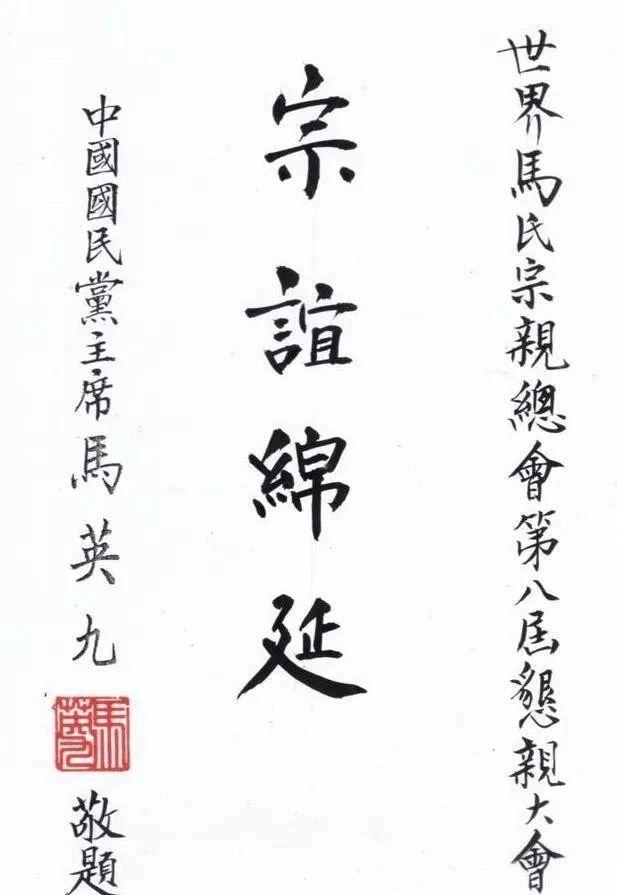 世界馬氏宗親總會第八屆懇親大會
宗誼綿延
中國國民黨主席馬英九
馬英九
敬題